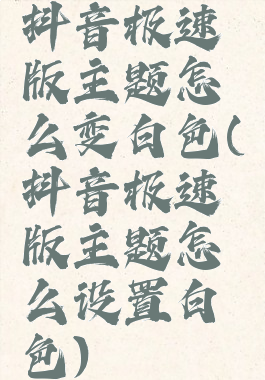 抖音极速
版主题怎
么变白色(
抖音极速
版主题怎
么设置白
色)